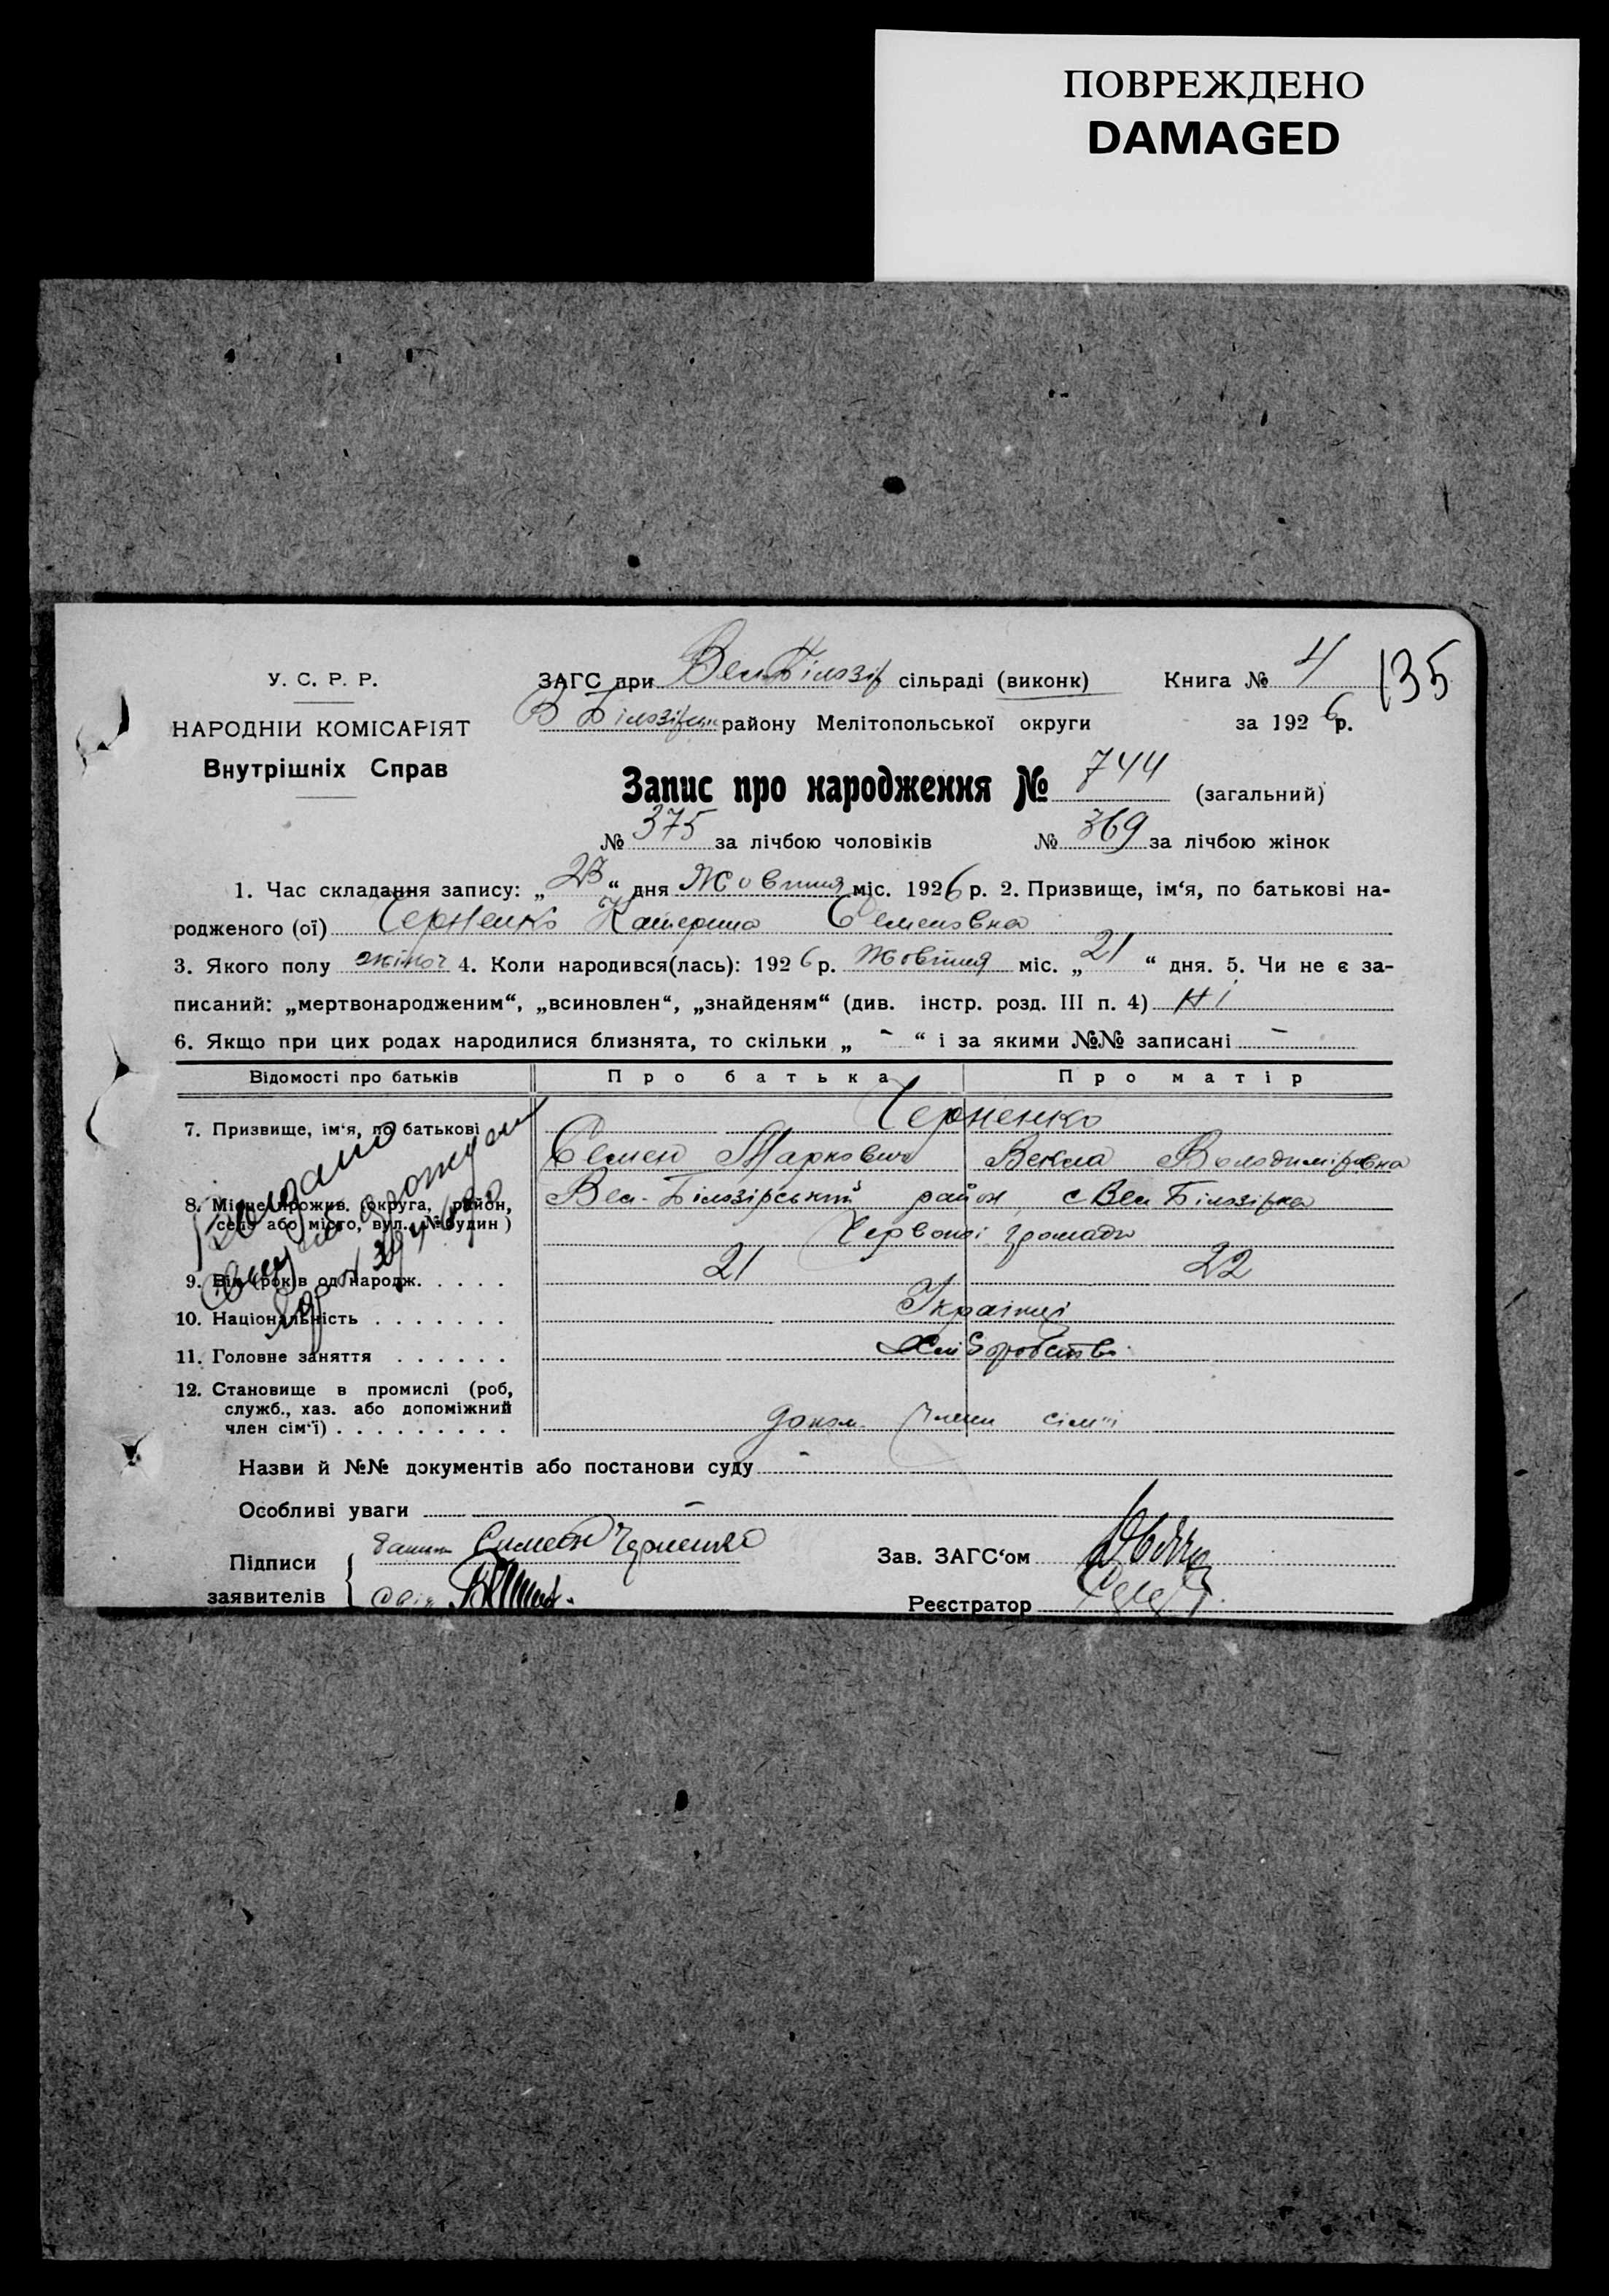 ПОВРЕЖДЕНО
DAMAGED
У. С. Р. Р.
НАРОДНІЙ КОМІСАРІЯТ
Внутрішніх Справ
ЗАГС при Вел Білозір сільраді (виконк)
Книга № 4
135
В Білозірськ району Мелітопольської округи
за 1926 р.
Запис про народження № 744 (загальний)
№ 375 за лічбою чоловіків № 369 за лічбою жінок
1. Час складання запису: „23“ дня Жовтня міс. 1926 р. 2. Призвище, ім‘я, по батькові на-
родженого (ої) Черненко Катерина Семеновна
3. Якого полу жіноч 4. Коли народився(лась): 1926 р. Жовтня міс. „21“ дня. 5. Чи не є за-
писаний: „мертвонародженим“, „всиновлен“, „знайденям“ (див. інстр. розд. III п. 4) Ні
6. Якщо при цих родах народилися близнята, то скільки „ - “ і за якими №№ записані -
Відомості про батьків Про батька Про матір
7. Призвище, ім‘я, по батькові Черненко
Семен Маркович Векла Володиміровна
8. Місце прожив. (округа, район, Вел-Білозірський район, с Вел Білозірка
село або місто, вул., № будин)
Червоної громади
9. Вік (років од народж. 21 22
10. Національність Українці
11. Головне заняття Хліборобство
12. Становище в промислі (роб,
служб., хаз. або допоміжний
член сім‘ї) допом члени сім'ї
Назви й №№ документів або постанови суду -
Особливі уваги -
Підписи
заявителів
Симеон Черненко
Зав. ЗАГС‘ом
Реєстратор